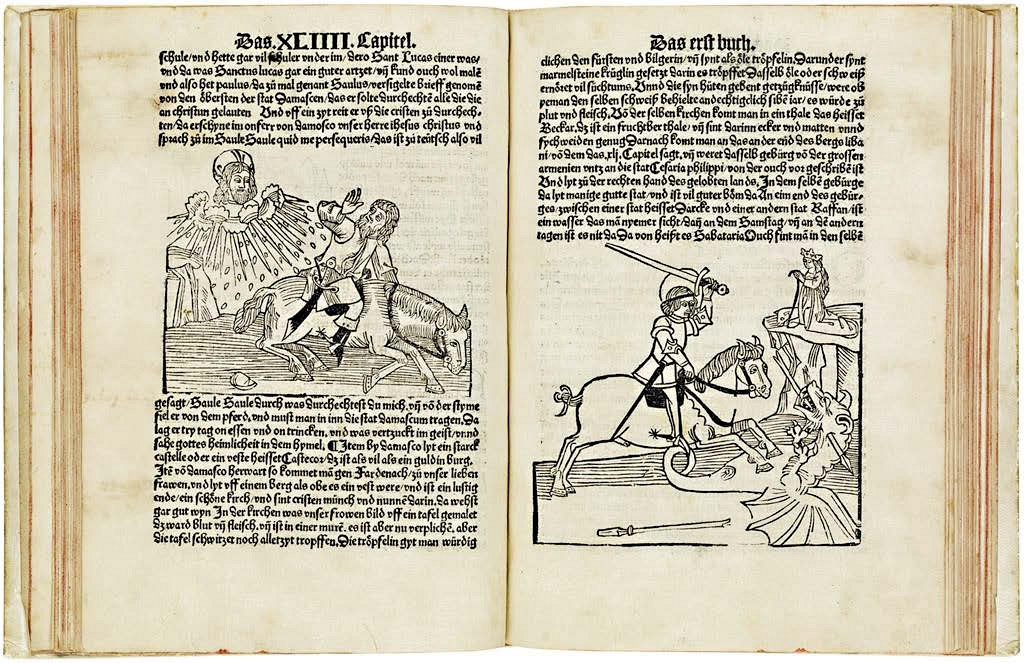 Das .XLIIII. Capitel.
schule/vnd hette gar vil schuler vnder im/dero Sant Lucas einer was/
vnd da was Sanctus lucas gar ein guter artzet/vñ kund ouch wol malē
vnd also het paulus/da zů mal genant Saulus/versigelte brieff genomē
von den öbersten der stat Damascen/das er solte durchechtē alle die die
an christun gelauten Vnd vff ein zyt reit er vß die cristen zů durchech-
ten/da erschyne im onferr von damosco vnser herre ihesus christus vnd
sprach zů im Saule Saule quid me persequeris/das ist zů teütsch also vil
gesagt/Saule Saule durch was durchechtest du mich. vñ vō der styme
fiel er von dem pferd. vnd must man in inn die stat damascum tragen. Da
lag er try tag on essen vnd on trincken. vnd was vertzuckt im geist/vnnd
sahe gottes heimlicheit in dem hymel. ¶ Item by damasco lyt ein starck
castelle oder ein veste heisset Castecoz/dz ist als vil als ein guldin burg.
Itē vō damasco herwart so kommet mā gen Fardenach/zů vnser lieben
frawen/vnd lyt vff einem berg als obe es ein vest were/vnd ist ein lustig
ende/ein schöne kirch/vnd sint cristen münch vnd nunnē darin. da wehst
gar gut wyn In der kirchen was vnser frowen bild vff ein tafel gemalet
dz ward blut vñ fleisch. vñ ist in einer murē. es ist aber nu verplichē. aber
die tafel schwitzet noch alletzyt tropffen. Die tröpfelin gyt man würdig
Das erst buch.
clichen den fürsten vnd bilgerin/vñ synt als öle tröpfelin. Darunder synt
marmelsteine krüglin gesetzt darin es tröpffet Dasselb öle oder schweiß
ernöret vil süchtums. Vnnd die syn hüten gebent getzügknüsse/were ob
yeman den selben schweiß behielte andechtigclich sibē iar/es würde zů
plut vnd fleisch. Vō der selben kirchen komt man in ein thale das heisset
Beckar. dz ist ein fruchtber thale/vñ sint darinn ecker vnd matten vnnd
sychweiden genug Darnach komt man an das an der end des bergs liba
ni/vō dem das. xlj. Capitel sagt. vñ weret dasselb gebürg vō der grossen
armenien vntz an die stat Cesaria philippi/von der ouch vor geschribē ist
Vnd lyt zů der rechten hand des gelobten lands. In dem selbē gebürge
da lyt manige gutte stat/vnd ist vil guter böm da An eim end des gebür-
ges/zwischen einer stat heisset Darcke vnd einer andern stat Raffan/ist
ein wasser das mā nyemer sicht/dañ an dem Samstag/vñ an dē andern
tagen ist es nit da Da von heißt es Sabataria Ouch fint mā in den selbē